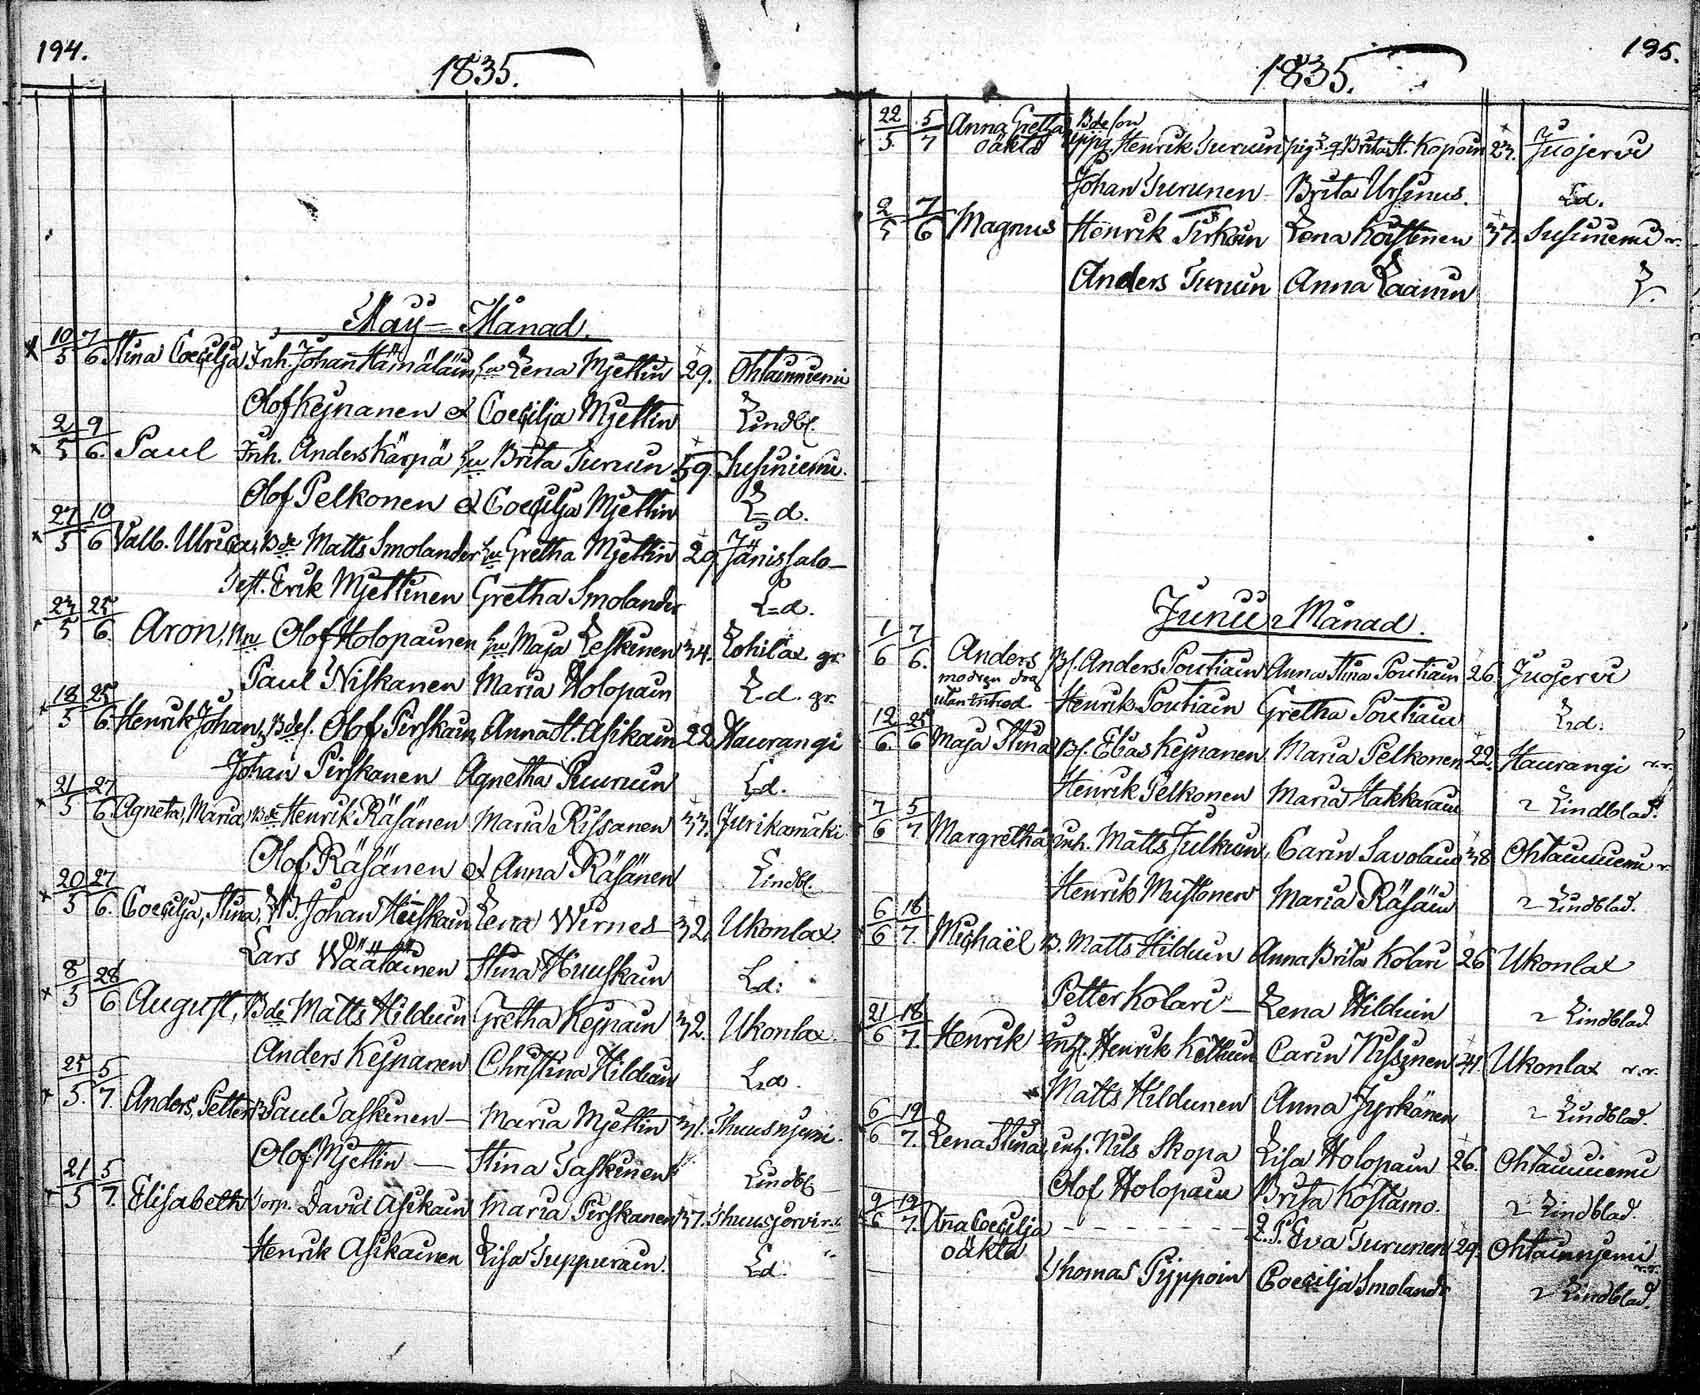 194.
1835.
May Månad.
10/5 7/6 Stina Coecilja Inh. Johan Hämäläin hu Lena Mjettin 29. Ohtainniemi
Olof Kejnanen & Coecilja Mjettin Lindbl.
2/5 9/6. Paul Inh. Anders Kärpä hu Brita Turuin 39. Susiniemi.
Olof Pelkonen & Coecilja Mjettin L=d.
27/5 10/6 Valb. Ulrica, Bde Matts Smolander hu Gretha Mjettin 29. Jänissalo
Erik Mjettinen Gretha Smolander L=d.
23/5 25/6. Aron, Olof Holopainen hu Maja Leskinen 34. Lohilax gr.
Paul Niskanen Maria Holopain L.d. gr.
18/5 25/6. Henrik Johan, Bdes. Olof Pirskain, Anna St. Asikain 22 Haurangi
Johan Pirskanen Agnetha Puuruin L.d.
21/5 27/6 Agneta, Maria, Bde Henrik Räsänen Maria Rissanen 33. Jurikamäki
Olof Räsänen & Anna Räsänen Lindbl.
20/5 27/6. Coecilja, Stina, Johan Huuskain Lena Wirnes 32. Ukonlax.
Lars Wäätäinen Stina Huuskain L.d:
8/5 28/6 August, Bde Matts Hilduin Gretha Kejnain 32. Ukonlax.
Anders Kejnanen Christina Hilduin L.d.
25/5. 5/7. Anders, Petter B. Paul Taskinen — Maria Mjettin 31.
Olof Mjettin — Stina Taskinen Lindbl
21/5 5/7. Elisabeth Corp. David Asikain Maria Pirskanen 37.
Henrik Asikainen Lisa Tuppurain. L.d.
195.
1835.
22/5. 5/7 Anna Gretha Bde son
oäkta Henrik Turuin pig. Brita St. Kopoin 23. Juojervi
Johan Turunen Brita Ursinus. L.d.
2/5 7/6 Magnus Henrik Tirkoin Lena Koistinen 37. Susiniemi r.
Anders Turuin Anna Laamin L.
Junii Månad.
1/6 7/6. Anders Bs. Anders Poutiain Anna Stina Poutiain 26. Juojervi
modren dog
utan Henrik Poutiain Gretha Poutiain L.d.
12/6. 25/6 Maja Stina Bs. Elias Kejnanen Maria Pelkonen 22. Haurangi r.r.
Henrik Pelkonen Maria Hakkarain 2 Lindblad.
7/6 5/7 Margretha inh. Matts Julkuin, Carin Savolain 38 Ohtainniemi r.
Henrik Mustonen Maria Räsäin 2 Lindblad.
6/6 18/7. Michaël B. Matts Hilduin Anna Brita Kolari 26 Ukonlax
Petter Kolari — Lena Hilduin 2 Lindblad
21/6 18/7. Henrik Henrik Kettuin Carin Nissinen 41. Ukonlax r.r.
Matts Hildunen Anna Jyrkänen 2 Lindblad.
6/6 19/7. Lena Stina, inh. Nils Skopa Lisa Holopain 26. Ohtainniemi
Olof Holopain Brita Kostamo. 2 Lindblad.
9/6 19/7. Coecilja - - - - - - Eva Turunen 29. Ohtainnjemi
oäkta r.r.
Thomas Pyppoin Coecilja Smolandr 2 Lindblad.